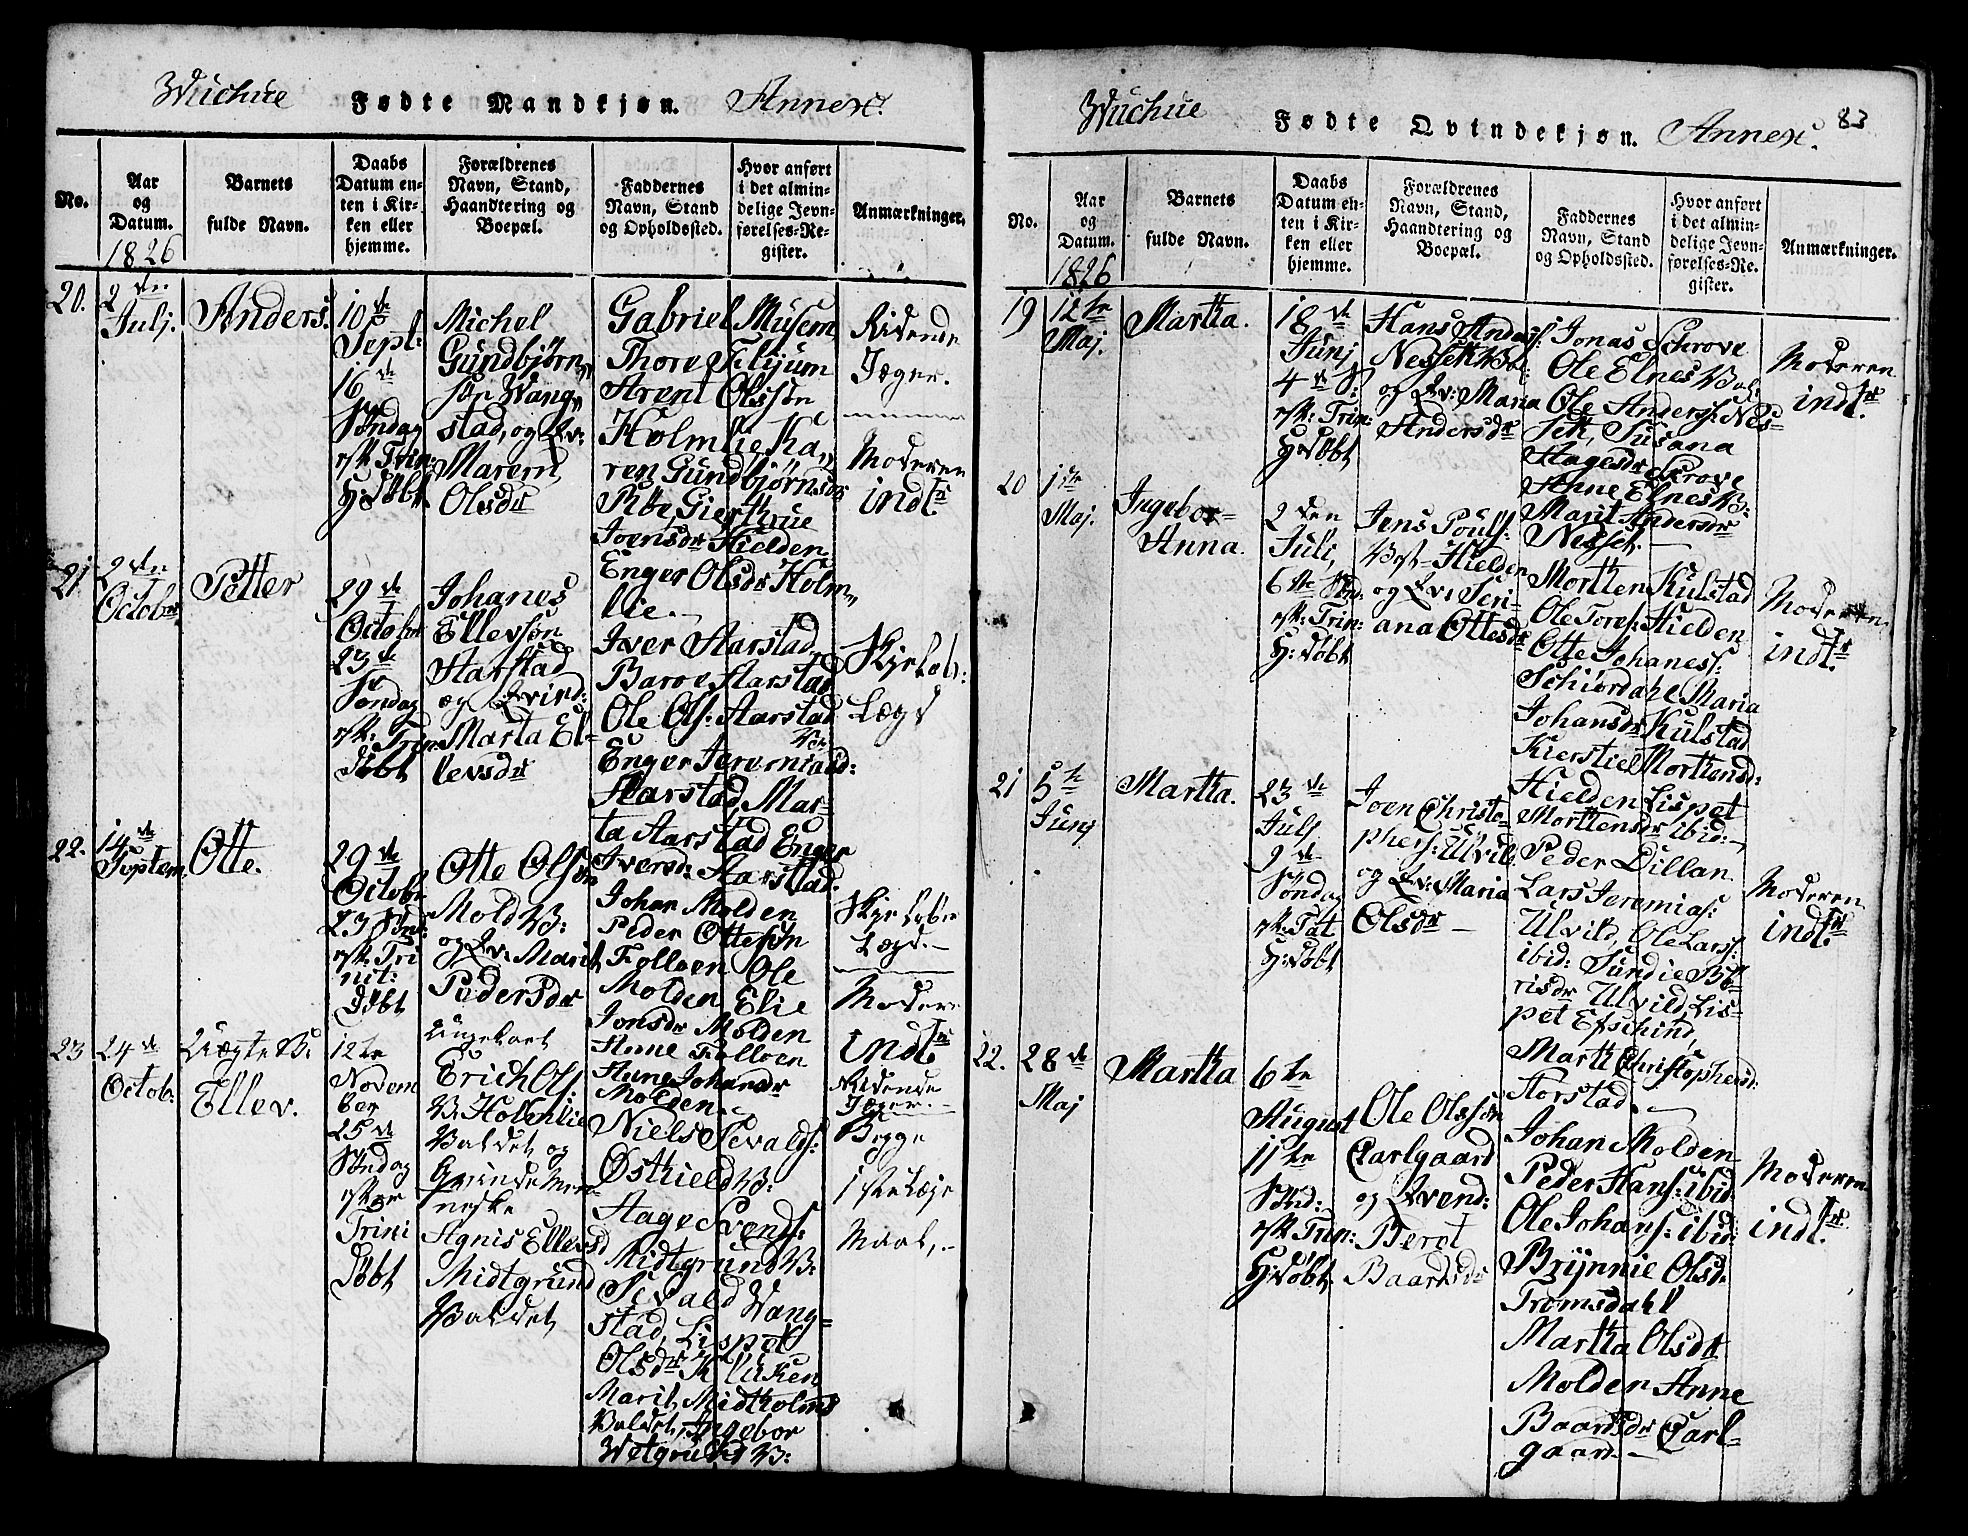 Wuchue Fødte Mandkjøn. Annex.
No.
Aar
og
Datum.
1826
Barnets
fulde Navn.
Daabs
Datum en-
ten i Kir-
ken eller
hjemme.
Forældrenes
Navn, Stand,
Haandtering og
Boepæl.
Faddernes
Navn, Stand
og Opholdssted.
Hvor anført
i det almin-
delige Jevn-
førelses-Re-
gister.
Anmærkninger.
20.
2den
Julj.
Anders.
10de
Sept:
16de
Søndag
efter Trin:
H: Døbt
Michel
Gundbjørn
søn Wang-
stad, og Qv:
Marem
Olsdr
Gabriel Musem
Thore Filijum
Arent Olssøn
Holmlie, Ka-
ren Gundbjørnsdr
Ribe, Gierthrue
Joensdr Hielden
Enger Olsdr Holm-
lie.
Ridende
Jæger.
Moderen
indl:
21
2den
Octobr
Petter
29de
Octobr
23de
Søndag
eft: Trin:
Døbt
Johanes
Ellevsøn
Aarstad
og Qvind:
Marta El-
levsdr
Iver Aarstad,
Baroe Aarstad
Ole Ols: Aarstad
Enger Jeremiasd:
Aarstad, Mar-
ta Aarstad Enger
Iversd: Aarstad.
Skjeløb:
Lægd
22.
14de
Septem
Otte.
29de
Octobr
23 Sønd:
eft: Tri
nit:
Døbt
Otte Olsøn
Mold V:
og Qv: Marit
Pedersdr
Johan Molden
Peder Ottesøn
Folloen Ole
Molden Elie
Jonsdr Molden
Anne Folloen
Ane Johansdr
Molden.
Skje Løbe
Lægd.
Modere
indl:
23
24de
Octob:
Uægte B:
Ellev.
12te
Novem
ber
25de
Søndag
efter
Trini
Døbt
Ungekarl
Erich Ols:
V: Holmlie
Valdet og
Qvindemen-
neske
Agnis Ellevsd
Midtgrund
Valdet
Niels Sevalds:
Østhield V:
Aage Svends:
Midtgrund V:
Sevald Wang-
stad, Lispet
Olsdr Kluken
Marit, Midtholms
Valdet, Ingebor
Wetgrund V:
Ridende
Jæger.
Begge
1ste Leje
Maal,
Wuchue Fødte Qvindekjøn. Annex. 83
No.
Aar
og
Datum.
1826
Barnets
fulde Navn.
Daabs
Datum en-
ten i Kir-
ken eller
hjemme.
Forældrenes
Navn, Stand,
Haandtering og
Boepæl.
Faddernes
Navn, Stand
og Opholdssted.
Hvor anført
i det almin-
delige Jevn-
førelses-Re-
gister.
Anmærkninger.
19
12te
Maj.
Martha.
18de
Junj
4de S:
eft: Trin:
H: Døbt
Hans Anders:
Nessek Val:
og Qv: Maria
Andersdr
Jonas Schrove
Ole Elnes Val:
Ole Anders: Nes-
sek, Susana
Hagesdr Skrove
Anne Elnes V:
Marit Andersdr
Nessek.
Moderen
indl:
20
1ste
Maj.
Ingebor-
Anna.
2den
Juli,
6te Sønd:
eft: Trin:
H: Døbt
Jens Pouls:
Vest-Hielden
og Qv: Seri-
ana Ottesdr
Morthen Kulstad
Ole Tores: Hielden
Otte Johaness:
Schiørdahl Maria
Johansdr Kulstad
Kierstie Morthensd:
Hielden Lispet
Morttensdr ibid:
Moderen
indl:
21
5te
Junj
Martha.
23de
Julj
9de
Søndag
eft: Tat
H: Døbt
Joen Christo-
phers: Ulvild
og Qv: Maria
Olsdr
Peder Dillan
Lars Jeremias:
Ulvild, Ole Lars:
ibid: Sundie Be-
risdr Ulvild, Lis-
pet Efschind,
Marth Christophersd:
Aorstad.
Moderen
indl:
22.
28de
Maj
Martha
6te
August
11te
Sønd:
eft: Trin:
H: Døbt
Ole Olssøn
Carlgaard
og Qvend:
Beret
Baardsdr
Johan Molden
Peder Hans: ibid:
Ole Johans: ibid:
Brijnnie Olsd:
Tromsdahl
Martha Olsdr
Molden Anne
Baardsdr Carl-
gaard.
Moderen
indl: